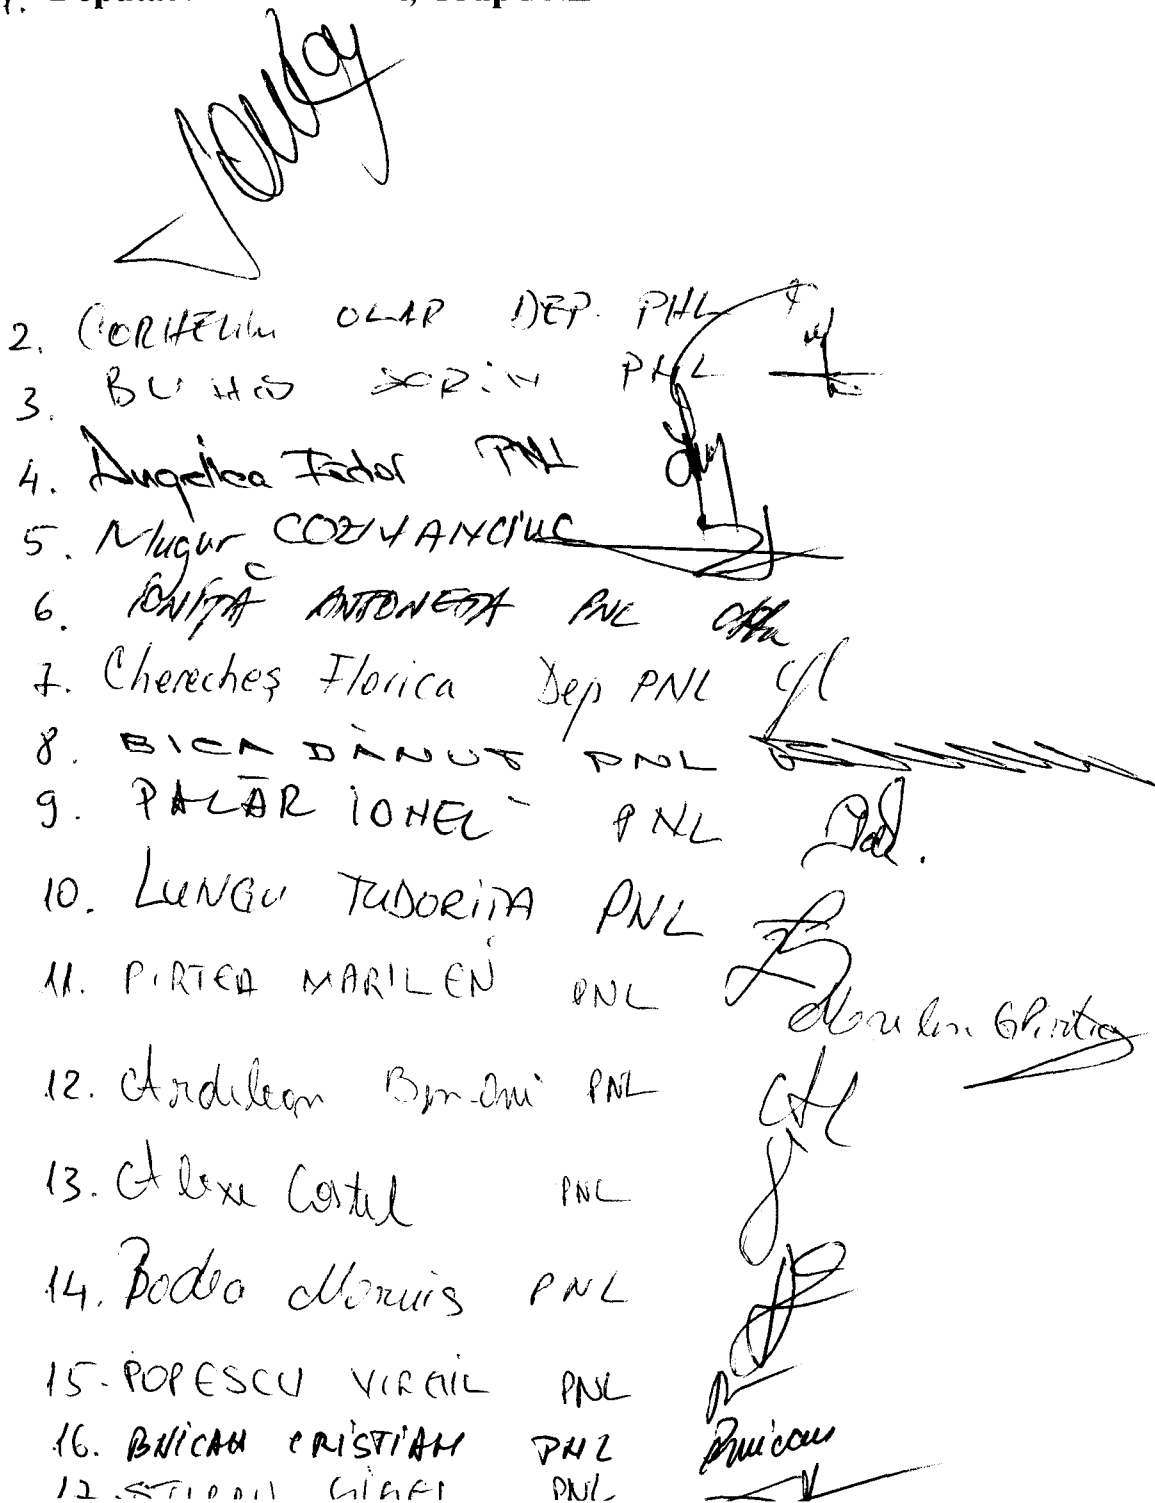 1.
2. CORNELIU OLAR DEP. PNL
3. BUMB SORIN PNL
4. Angelica Fădor PNL
5. Mugur COZMANCIUC
6. IONIȚĂ ANTONETA PNL
7. Cherecheș Florica Dep PNL
8. BICA DĂNUȚ PNL
9. PALĂR IONEL PNL
10. LUNGU TUDORIȚA PNL
11. PIRTEA MARILEN PNL
12. Ardelean Ben-Oni PNL
13. Alexe Costel PNL
14. Bodea Marius PNL
15. POPESCU VIRGIL PNL
16. BUICAN CRISTIAN PNL Buican
17. GIGEL PNL